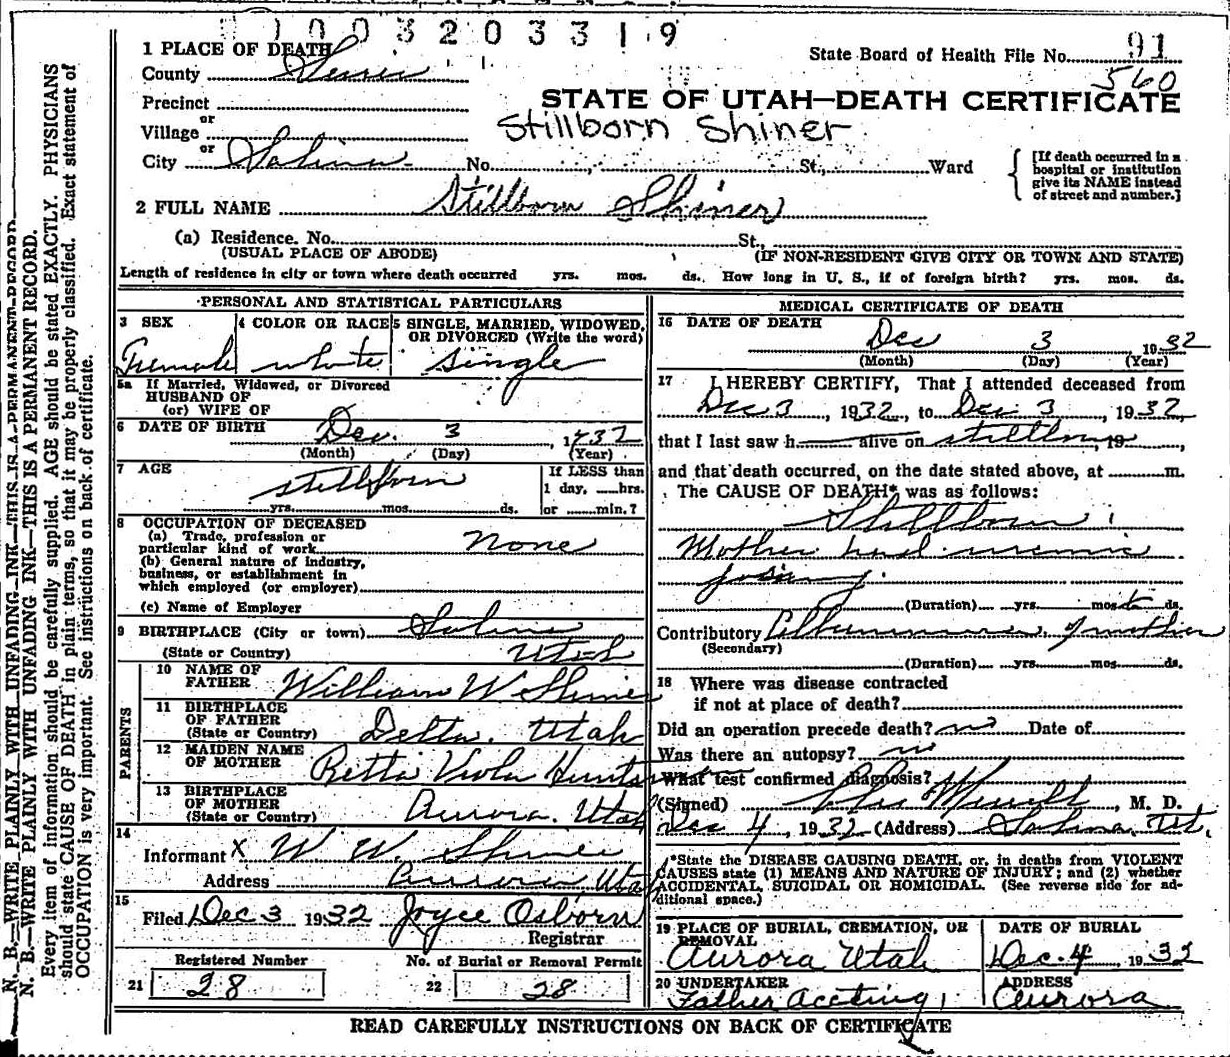 1003203319
1 PLACE OF DEATH
State Board of Health File No. 91
County Sevier
560
Precinct
STATE OF UTAH—DEATH CERTIFICATE
or
Stillborn Shiner
Village
or
City Salina No. St., Ward
[If death occurred in a hospital or institution give its NAME instead of street and number.]
2 FULL NAME Stillborn Shiner
(a) Residence. No. St.,
(USUAL PLACE OF ABODE) (IF NON-RESIDENT GIVE CITY OR TOWN AND STATE)
Length of residence in city or town where death occurred yrs. mos. ds. How long in U. S., if of foreign birth? yrs. mos. ds.
PERSONAL AND STATISTICAL PARTICULARS
3 SEX
Female
4 COLOR OR RACE
white
5 SINGLE, MARRIED, WIDOWED,
OR DIVORCED (Write the word)
single
5a If Married, Widowed, or Divorced
HUSBAND OF
(or) WIFE OF
6 DATE OF BIRTH Dec. 3, 1932
(Month) (Day) (Year)
7 AGE
stillborn
yrs. mos. ds.
If LESS than
1 day, hrs.
or min.?
8 OCCUPATION OF DECEASED
(a) Trade, profession or
particular kind of work None
(b) General nature of industry,
business, or establishment in
which employed (or employer)
(c) Name of Employer
9 BIRTHPLACE (City or town) Salina
(State or Country) Utah
PARENTS
10 NAME OF
FATHER William W Shiner
11 BIRTHPLACE
OF FATHER
(State or Country) Delta, Utah
12 MAIDEN NAME
OF MOTHER Retta Viola Hunt
13 BIRTHPLACE
OF MOTHER
(State or Country) Aurora, Utah
14
Informant X W. W. Shiner
Address Aurora Utah
15
Filed Dec 3 1932 Joyce Osborn
Registrar
Registered Number
21 28
No. of Burial or Removal Permit
22 28
MEDICAL CERTIFICATE OF DEATH
16 DATE OF DEATH
Dec 3 1932
(Month) (Day) (Year)
17 I HEREBY CERTIFY, That I attended deceased from
Dec 3, 1932, to Dec. 3, 1932,
that I last saw h alive on stillborn, 19,
and that death occurred, on the date stated above, at m.
The CAUSE OF DEATH* was as follows:
Stillborn
Mother had uremic
(Duration) yrs. mos. ds.
Contributory Albuminuria of mother
(Secondary)
(Duration) yrs. mos. ds.
18 Where was disease contracted
if not at place of death?
Did an operation precede death? no Date of
Was there an autopsy? no
What test confirmed diagnosis?
(Signed) , M. D.
Dec 4, 1932 (Address) Salina, Ut.
*State the DISEASE CAUSING DEATH, or, in deaths from VIOLENT
CAUSES state (1) MEANS AND NATURE OF INJURY; and (2) whether
ACCIDENTAL, SUICIDAL OR HOMICIDAL. (See reverse side for ad-
ditional space.)
19 PLACE OF BURIAL, CREMATION, OR
REMOVAL
Aurora Utah
DATE OF BURIAL
Dec. 4 1932
20 UNDERTAKER
Father Aceting
ADDRESS
Aurora
READ CAREFULLY INSTRUCTIONS ON BACK OF CERTIFICATE
N. B.—WRITE PLAINLY WITH UNFADING INK—THIS IS A PERMANENT RECORD.
N. B.—WRITE PLAINLY WITH UNFADING INK—THIS IS A PERMANENT RECORD.
Every item of information should be carefully supplied. AGE should be stated EXACTLY. PHYSICIANS
should state CAUSE OF DEATH in plain terms, so that it may be properly classified. Exact statement of
OCCUPATION is very important. See instructions on back of certificate.